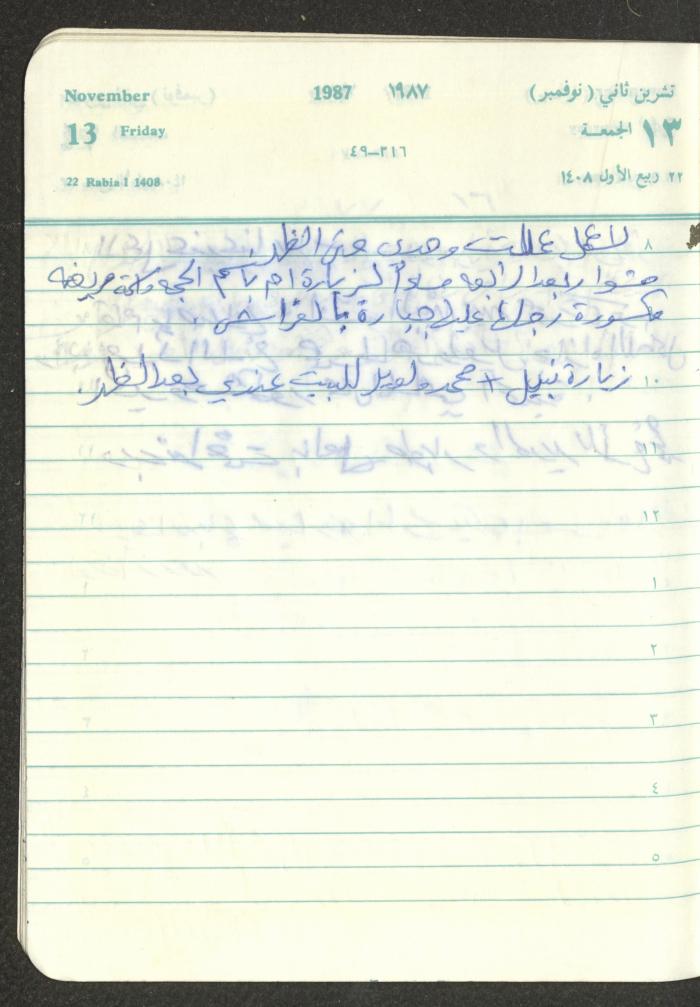 November 1987 ١٩٨٧ تشرين ثاني (نوفمبر)
13 Friday ١٣ الجمعة
٣١٦–٤٩
22 Rabia I 1408 ٢٢ ربيع الأول ١٤٠٨
٨ لا عمل عملت وحدي حتى الظهر
مشوار بعد الرابعة مساءً لزيارة ام باسم الحجة مريضه
مكسورة رجلها عليها جبارة بالفراش.
١٠ زيارة نبيل + محمد للبيت عندي بعد الظهر.
١١
١٢
١
٢
٣
٤
٥